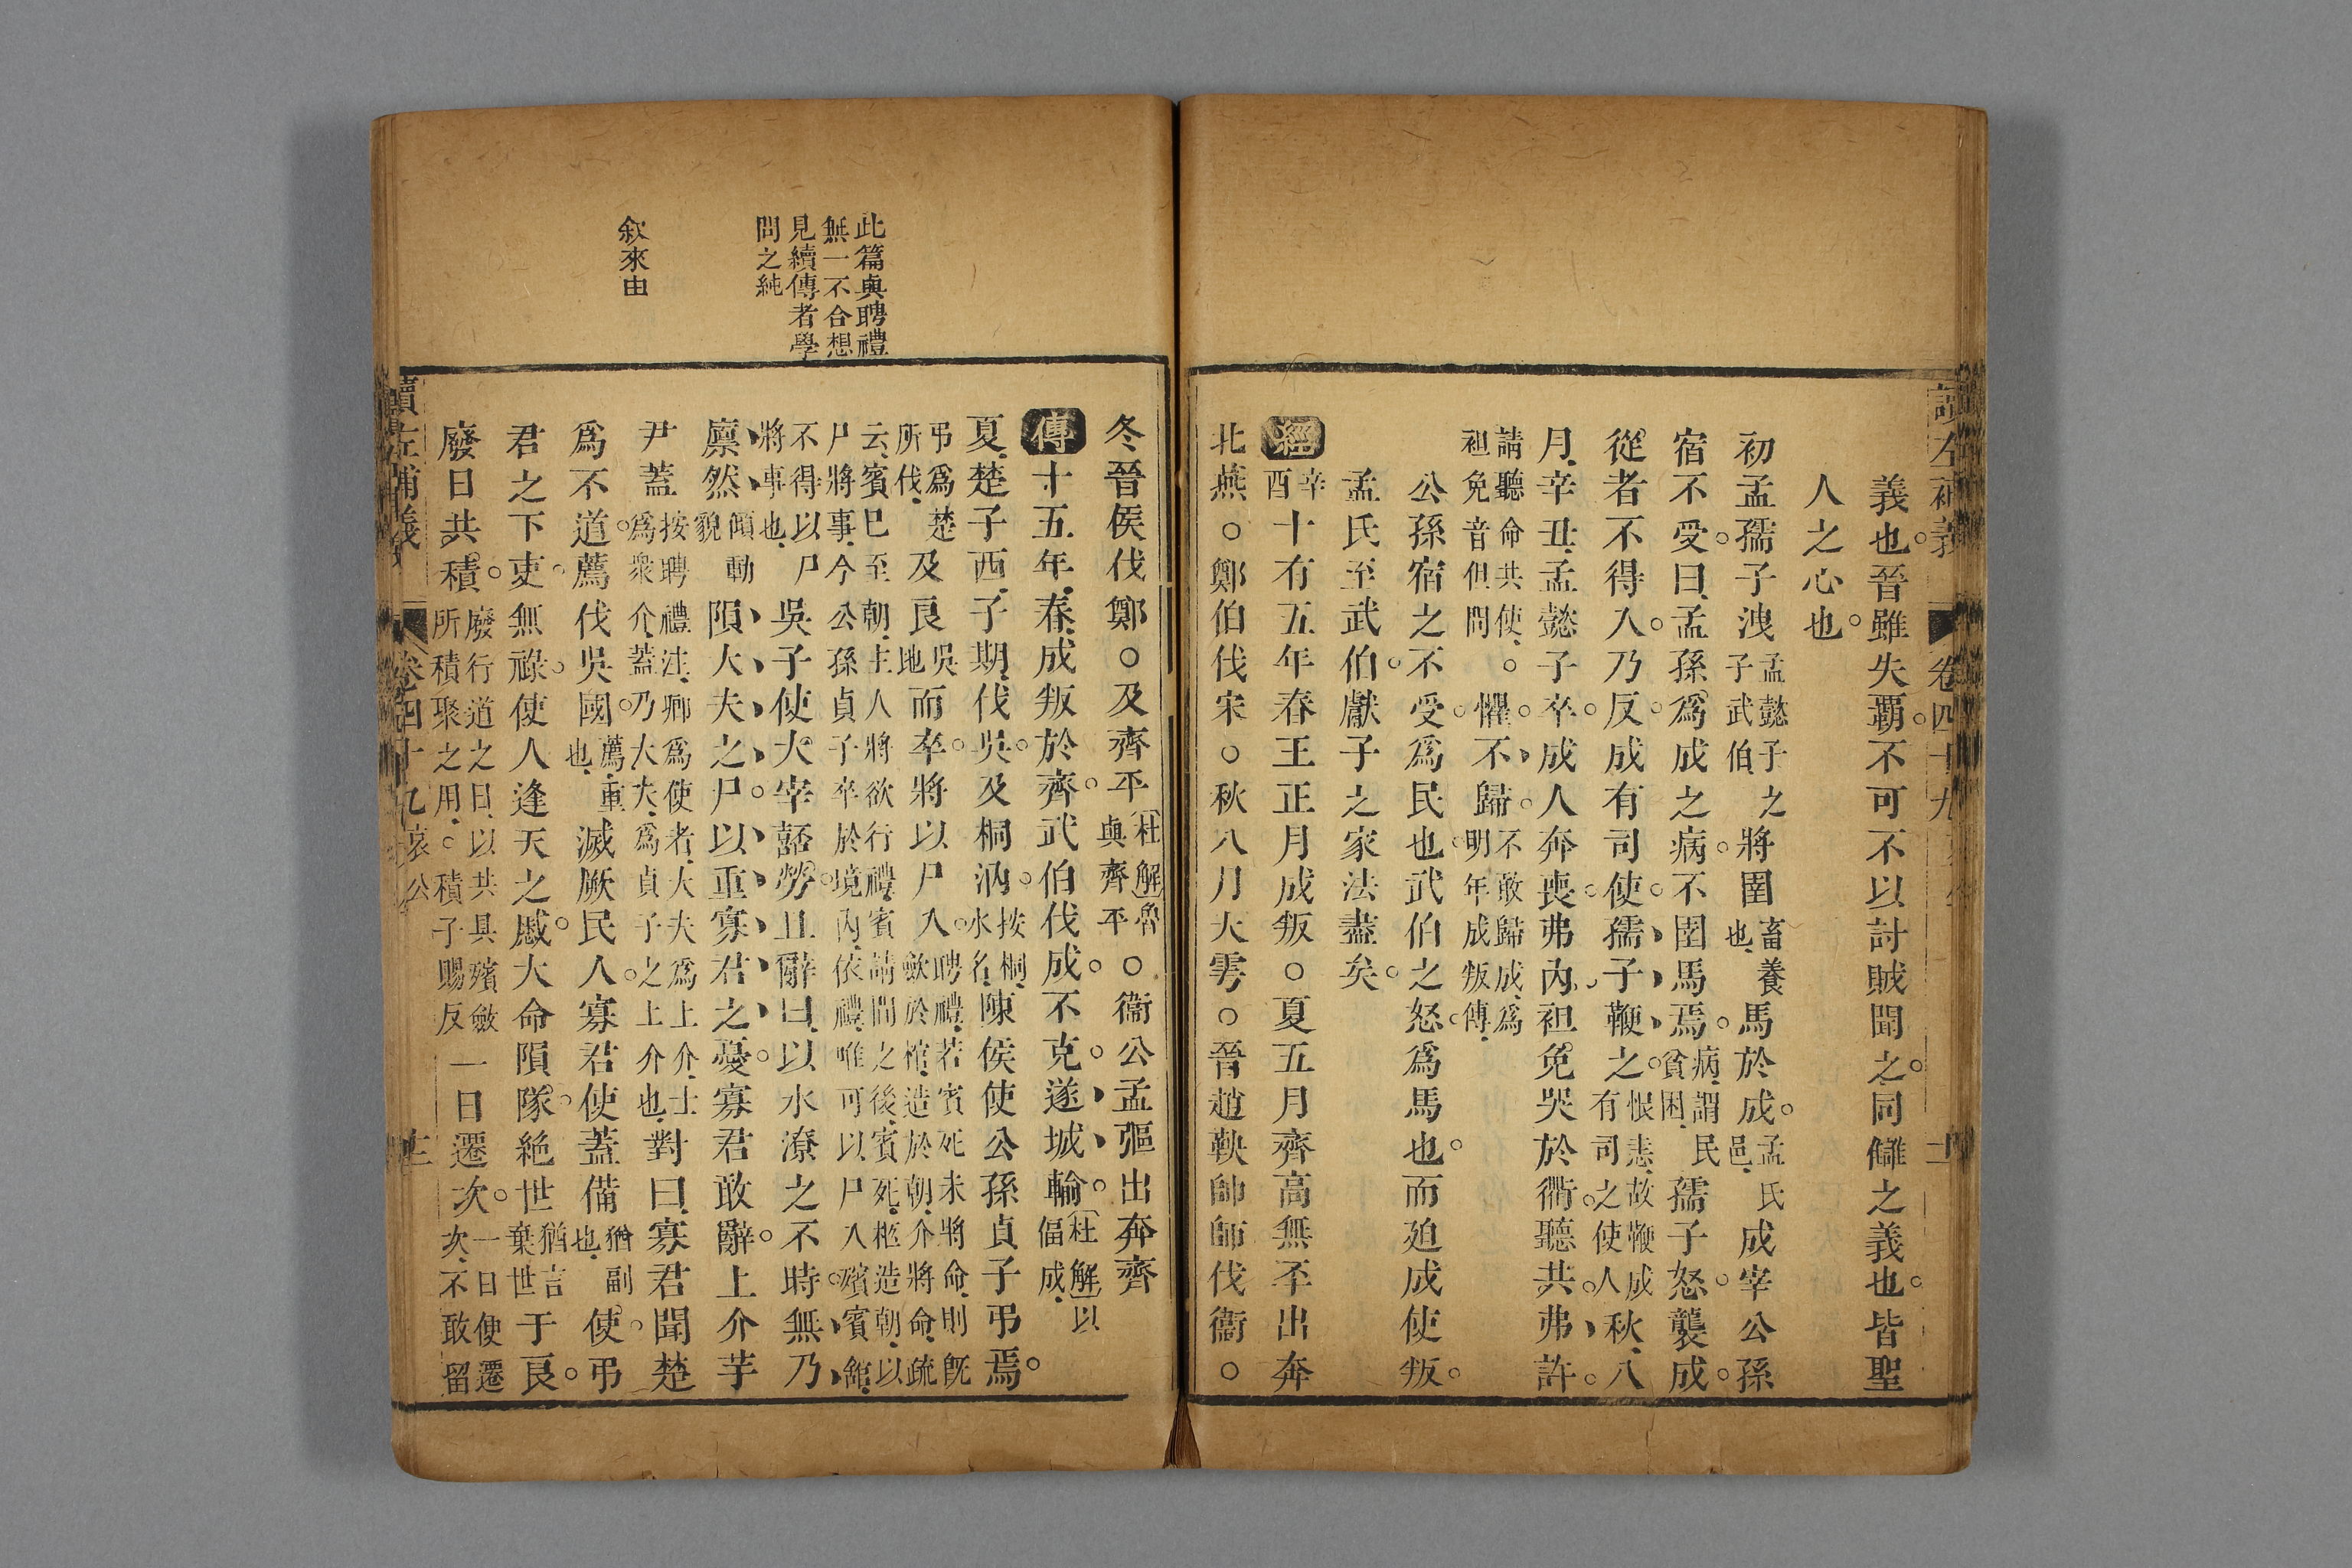 讀左補義 卷四十九
義也晉雖失覇不可不以討賊聞之同讎之義也皆聖
人之心也
初孟孺子洩孟懿子之子武伯將圉畜養也馬於成孟氏邑成宰公孫
宿不受曰孟孫爲成之病不圉馬焉病謂民貧困孺子怒襲成
從者不得入乃反成有司使孺子鞭之恨恚故鞭成有司之使人秋八
月辛丑孟懿子卒成人奔喪弗內袒免哭於衢聽共弗許
請聽命共使○袒免音但問懼不歸不敢歸成爲明年成叛傳
公孫宿之不受爲民也武伯之怒爲馬也而廹成使叛
孟氏至武伯獻子之家法盡矣
經辛酉十有五年春王正月成叛○夏五月齊高無㔻出奔
北燕○鄭伯伐宋○秋八月大雩○晉趙鞅帥師伐衞○
冬晉侯伐鄭○及齊平杜解魯與齊平○衞公孟彄出奔齊
傳十五年春成叛於齊武伯伐成不克遂城輸杜解以偪成
夏楚子西子期伐吳及桐汭按桐水名陳侯使公孫貞子弔焉
弔爲楚所伐及良吳地而卒將以尸入聘禮若賓死未將命則旣斂於棺造於朝介將命疏
云賓巳至朝主人將欲行禮賓請間之後賓死柩造朝以尸將事今公孫貞子卒於境內依禮唯可以尸入殯賓館
不得以尸將事也吳子使大宰嚭勞且辭曰以水潦之不時無乃
廩然傾動貌隕大夫之尸以重寡君之憂寡君敢辭上介芋
尹蓋按聘禮注卿爲使者大夫爲上介士爲衆介蓋乃大夫爲貞子之上介也對曰寡君聞楚
爲不道薦伐吳國薦重也滅厥民人寡君使蓋備猶副也使弔
君之下吏無祿使人逢天之慼大命隕隊絶世猶言棄世于良
廢日共積廢行道之日以共具殯斂所積聚之用○積子賜反一日遷次一日便遷次不敢留
讀左補義 卷四十九 哀公
此篇與聘禮
無一不合想
見續傳者學
問之純
敘來由